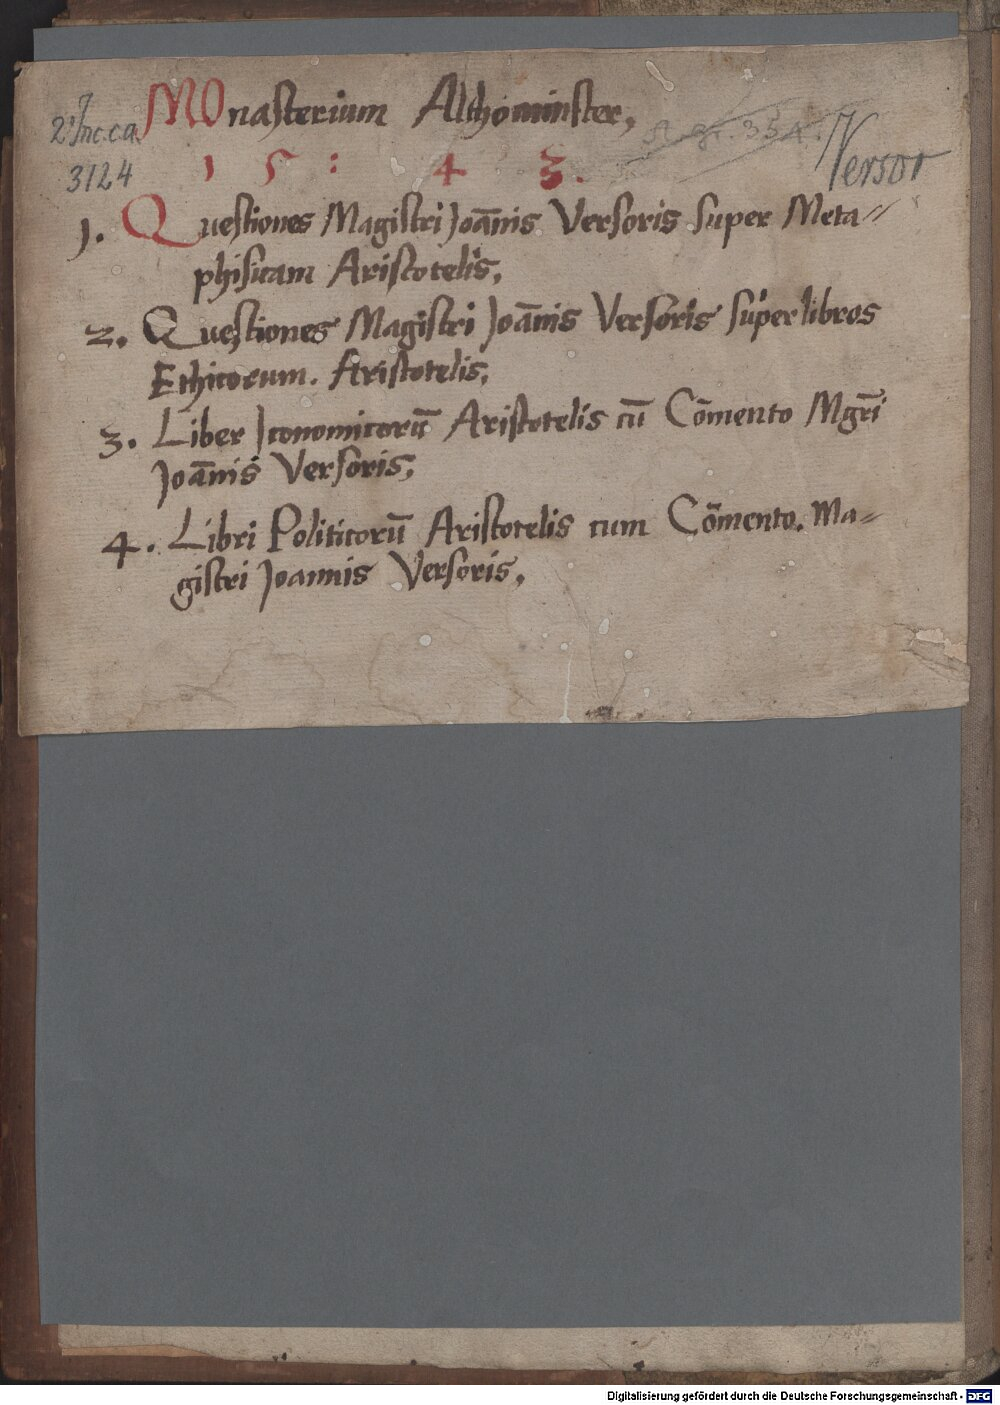 MOnasterium Althominster,
2° Inc.c.a.
3124
Versor
1 5 : 4 3.
1. Questiones Magistri Joānis Versoris super Meta⸗
phisicam Aristotelis,
2. Questiones Magistri Joānis Versoris super libros
Ethicorum. Aristotelis,
3. Liber Iconomicorū Aristotelis cū Cōmento Mgrī
Joānis Versoris,
4. Libri Politicorū Aristotelis cum Cōmento. Ma⸗
gistri Joannis Versoris,
Digitalisierung gefördert durch die Deutsche Forschungsgemeinschaft - DFG